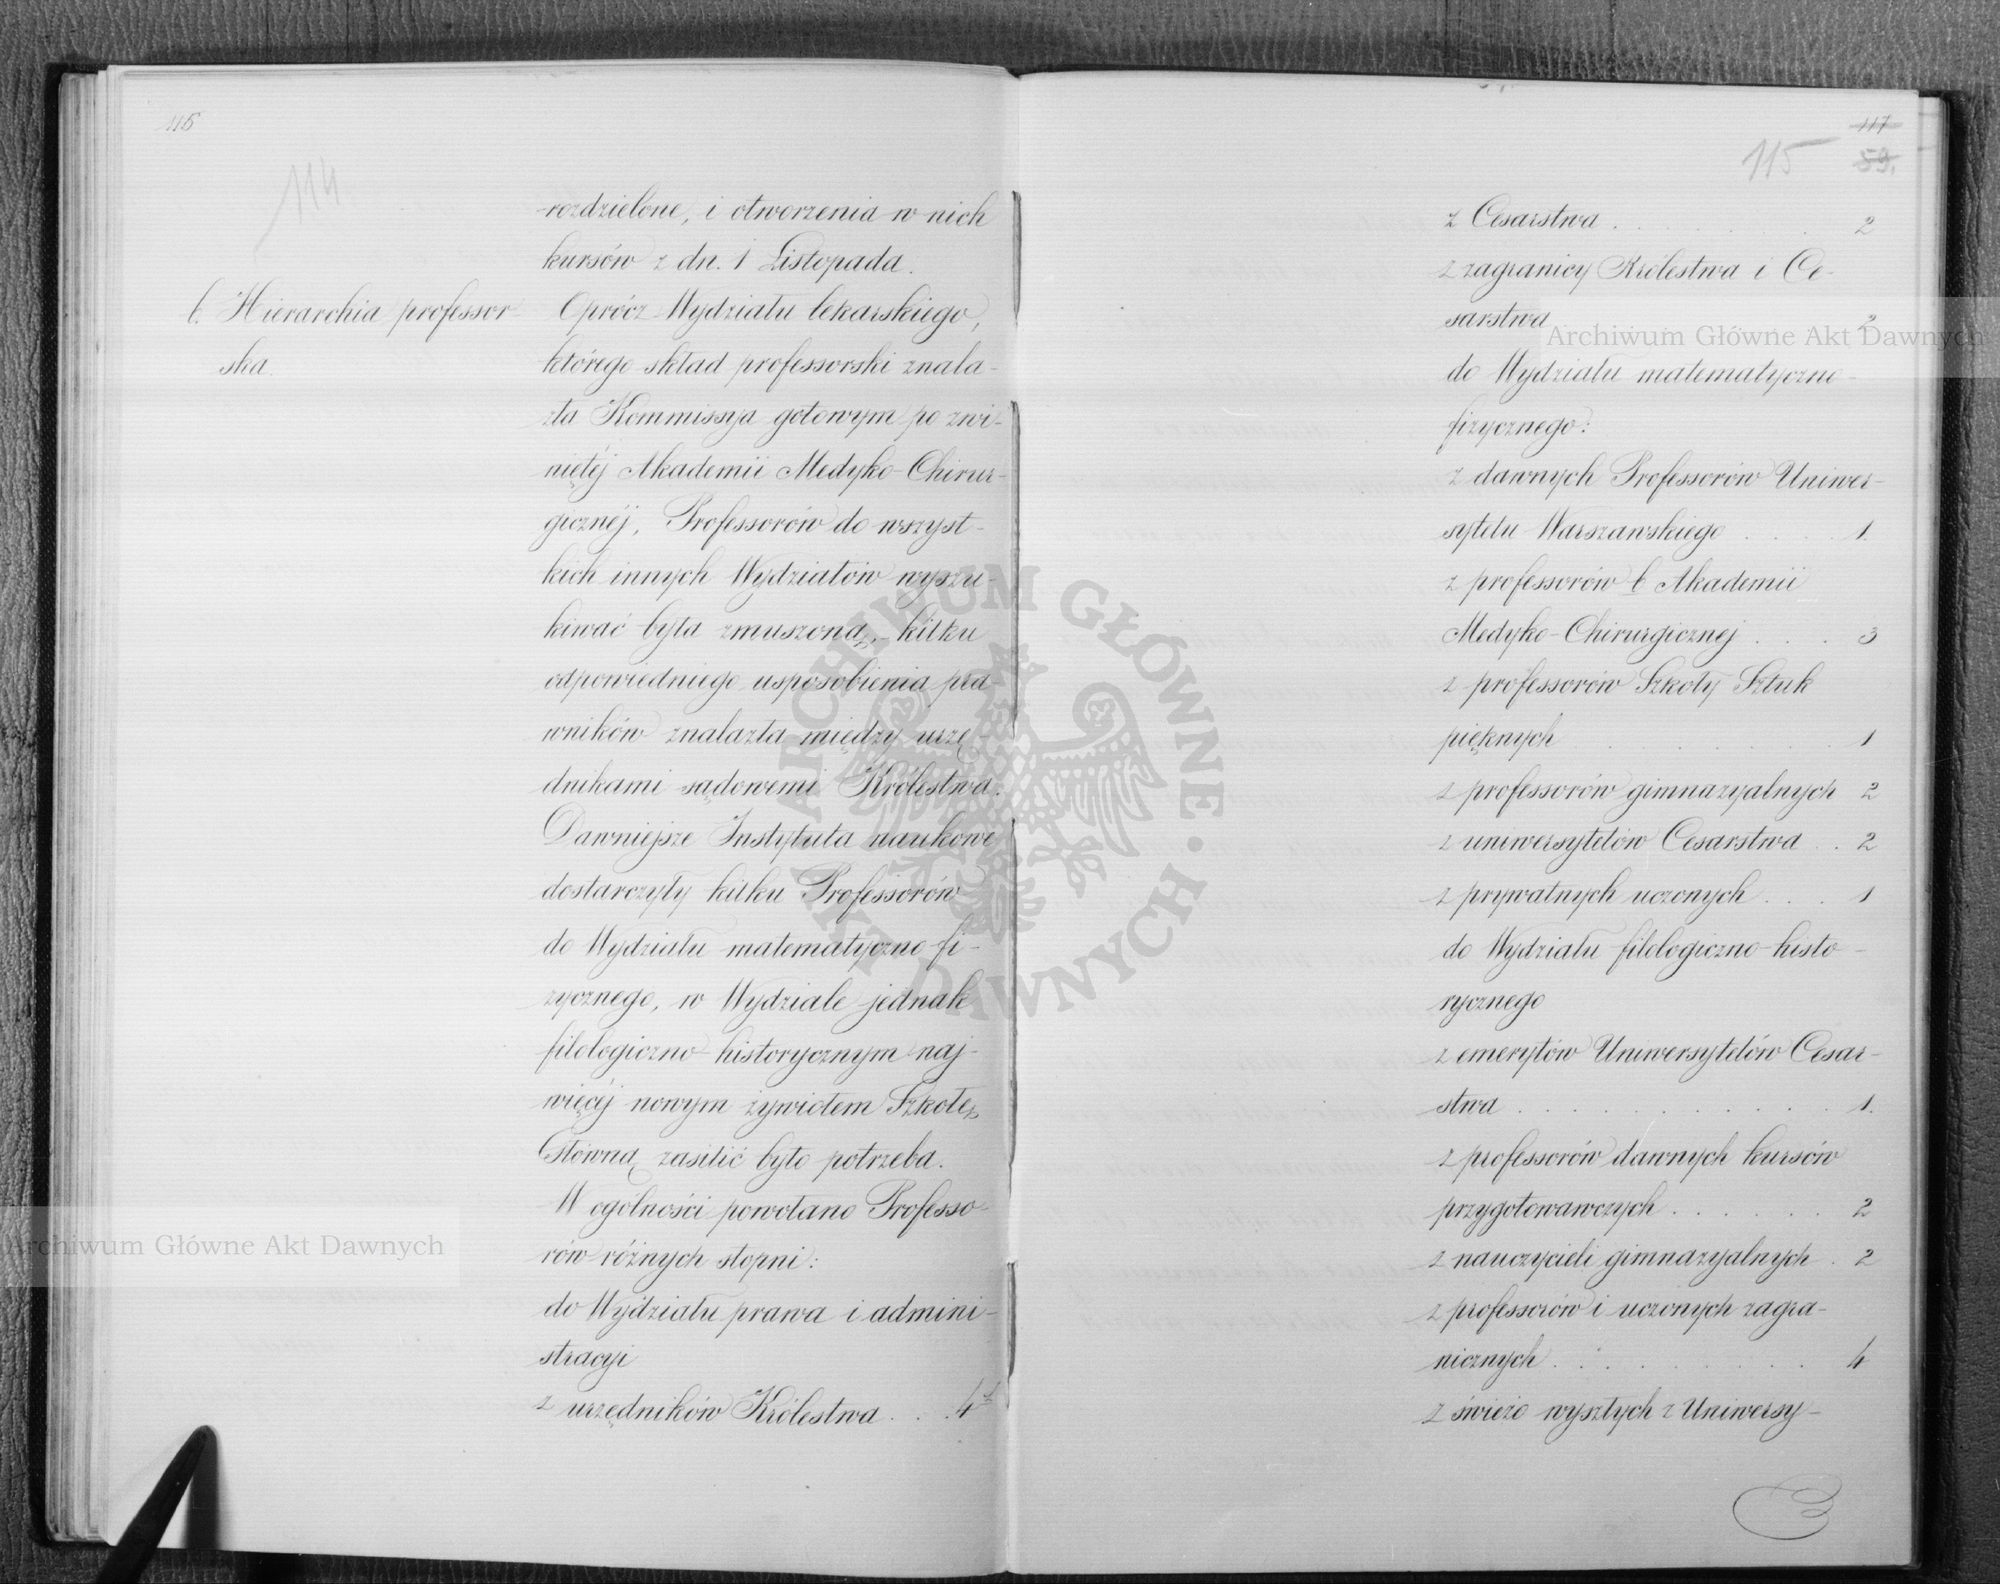 116
114
rozdzielone, i otworzenia w nich
kursów z dn. 1 Listopada.
b. Hierarchia professor-
ska.
Oprócz Wydziału lekarskiego,
którego skład professorski znala-
zła Kommissya gotowym po zwi-
niętéj Akademii Medyko-Chirur-
gicznéj, Professorów do wszyst-
kich innych Wydziałów wyszu-
kiwać była zmuszoną, kilku
odpowiedniego usposobienia pra-
wników znalazła między urzę-
dnikami sądowemi Królestwa.
Dawniejsze Instytuta naukowe
dostarczyły kilku Professorów
do Wydziału matematyczno-fi-
zycznego, w Wydziale jednak
filologiczno-historycznym naj-
więcéj nowym żywiołem Szkołę
Główną zasilić było potrzeba.
W ogólności powołano Professo-
rów różnych stopni:
do Wydziału prawa i admini-
stracyi
z urzędników Królestwa . . . 4
117
115
59.
z Cesarstwa . . . . . . 2
z zagranicy Królestwa i Ce-
sarstwa
do Wydziału matematyczno-
fizycznego:
z dawnych Professorów Uniwer-
sytetu Warszawskiego . . . . 1.
z professorów b. Akademii
Medyko-Chirurgicznej . . . . 3
z professorów Szkoły Sztuk
pięknych . . . . . . . 1
z professorów gimnazyalnych 2
z uniwersytetów Cesarstwa . . 2
z prywatnych uczonych . . . 1
do Wydziału filologiczno-histo-
rycznego
z emerytów Uniwersytetów Cesar-
stwa . . . . . . . . . . . 1.
z professorów dawnych kursów
przygotowawczych . . . . . . 2
z nauczycieli gimnazyalnych . 2
z professorów i uczonych zagra-
nicznych . . . . . . . . . 4
z świeżo wyszłych z Uniwersy-
Archiwum Główne Akt Dawnych
Archiwum Główne Akt Dawnych
ARCHIWUM GŁÓWNE AKT DAWNYCH